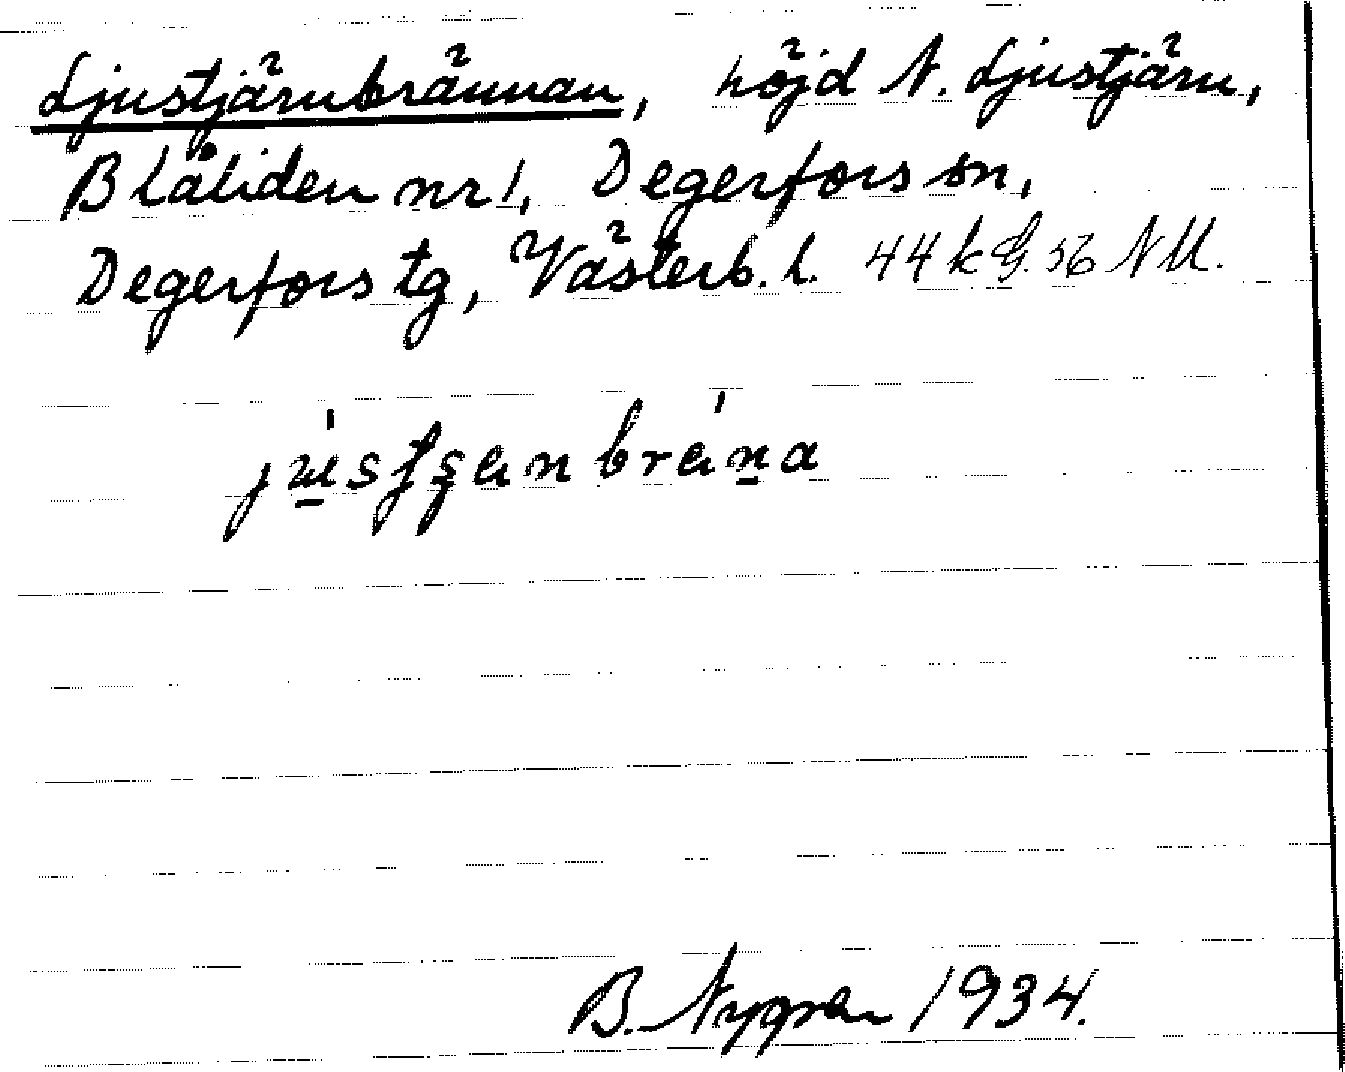 Ljustjärnbrännan, höjd N. Ljustjärn,
Blåliden nr 1, Degerfors sn,
Degerfors tg, Västerb. l. 44 k G. 56 NU.
B. Nygren 1934.